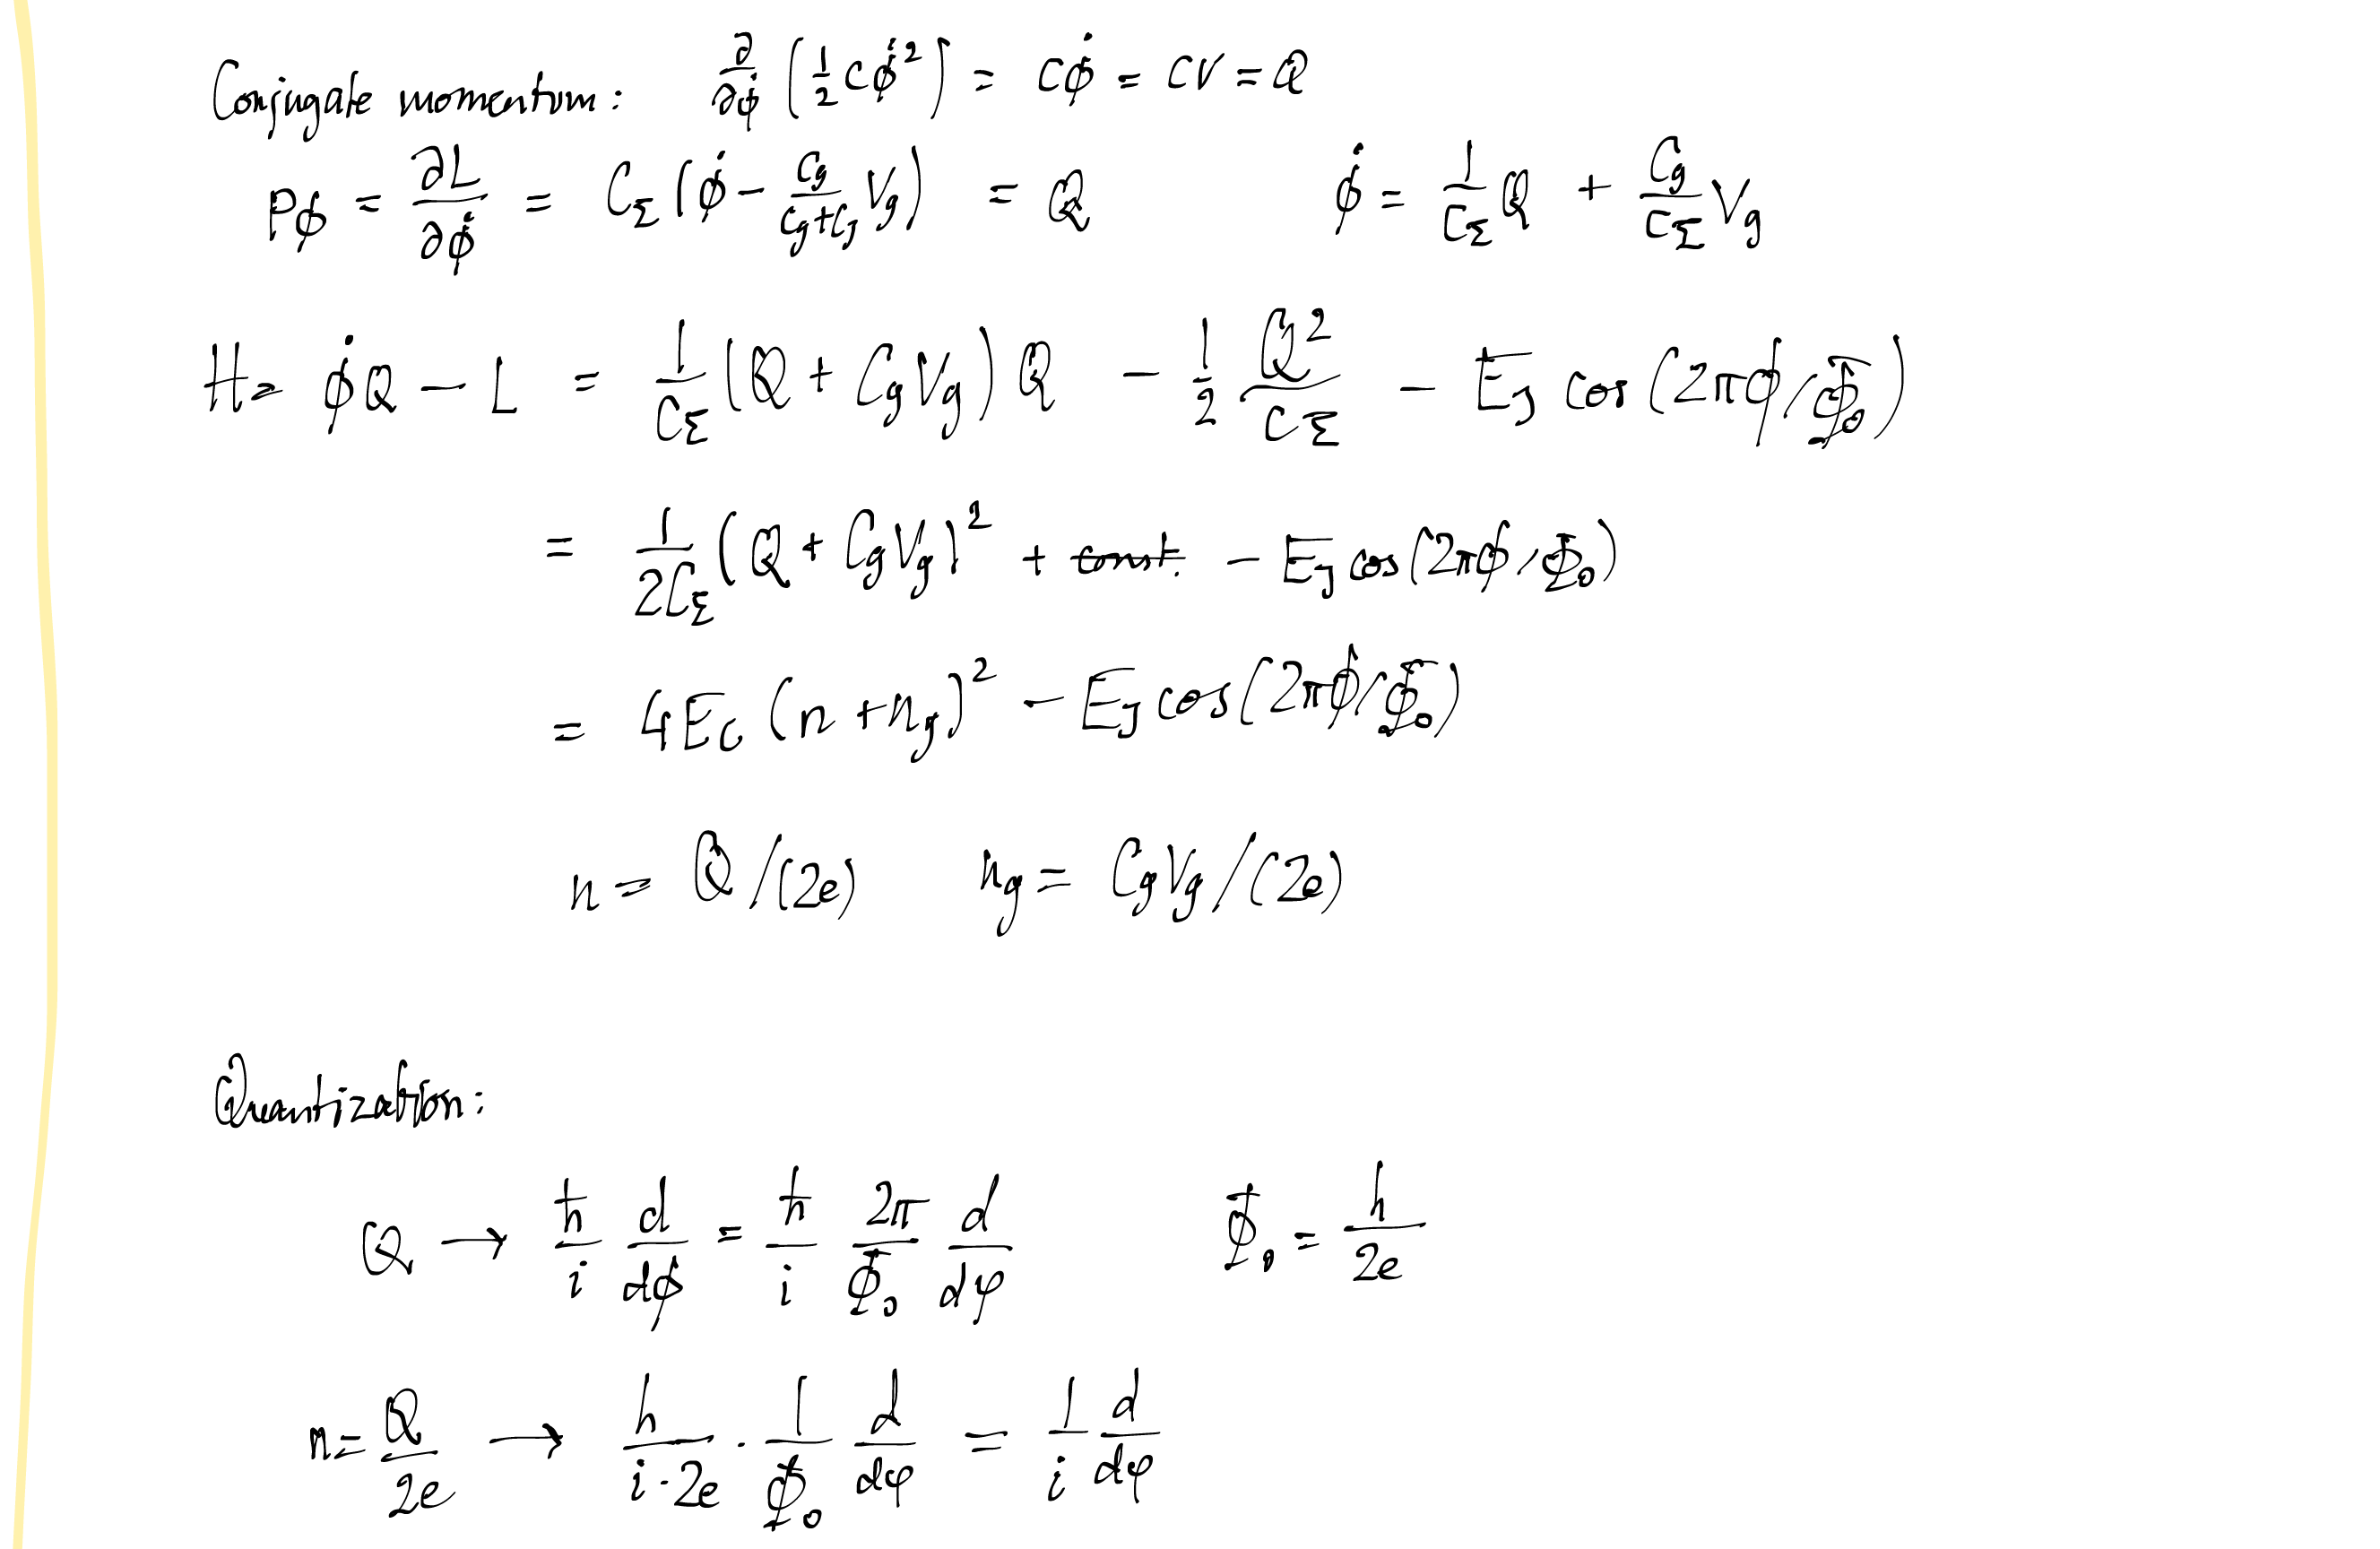 Conjugate momentum: ∂/∂ϕ̇ (½ Cϕ̇²) = Cϕ̇ = CV = Q
p_ϕ = ∂L/∂ϕ̇ = C_Σ (ϕ̇ − C_g/(C_g+C_J) V_g) = Q ϕ̇ = 1/C_Σ Q + C_g/C_Σ V_g
H = ϕ̇Q − L = 1/C_Σ (Q + C_g V_g) Q − 1/2 Q²/C_Σ − E_J cos(2πϕ/Φ₀)
= 1/(2C_Σ) (Q + C_g V_g)² + const. − E_J cos(2πϕ/Φ₀)
= 4E_C (n + n_g)² − E_J cos(2πϕ/Φ₀)
n = Q/(2e) n_g = C_g V_g/(2e)
Quantization:
Q → ħ/i d/dϕ = ħ/i 2π/Φ₀ d/dφ Φ₀ = h/2e
n = Q/2e → h/(i·2e) · 1/Φ₀ d/dφ = 1/i d/dφ